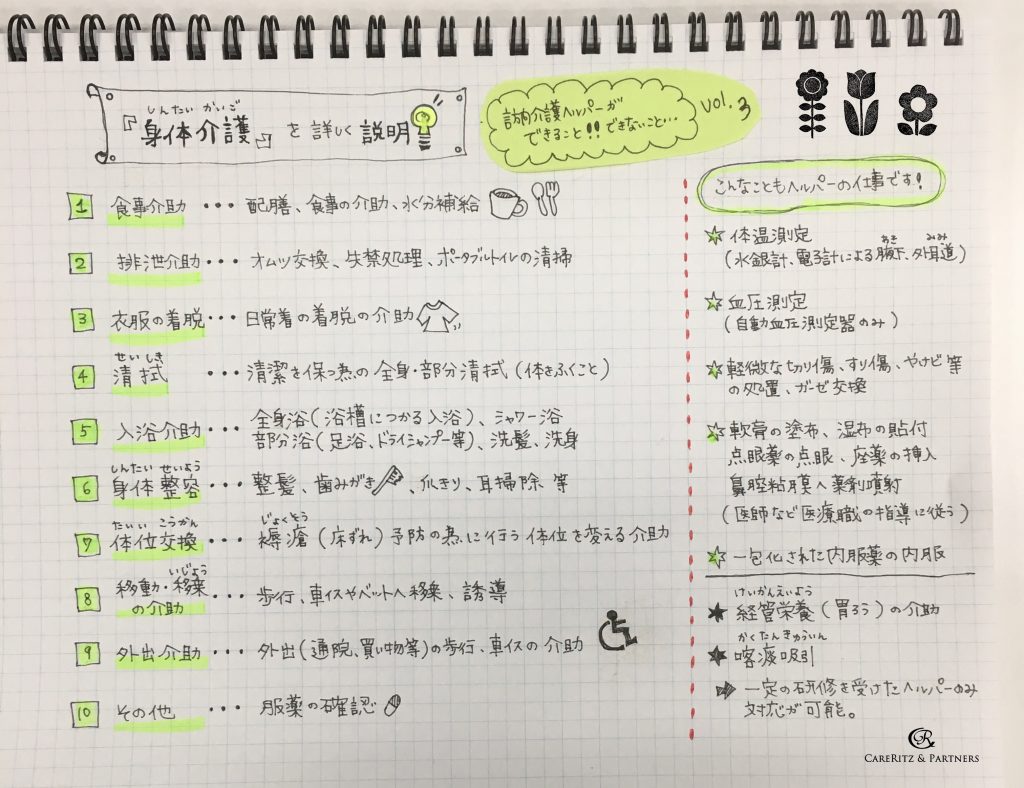 しんたい かいご
『身体介護』を詳しく説明
訪問介護ヘルパーが
できること!!できないこと…
vol.3
1 食事介助 ・・・ 配膳、食事の介助、水分補給
2 排泄介助 ・・・ オムツ交換、失禁処理、ポータブルトイレの清掃
3 衣服の着脱 ・・・ 日常着の着脱の介助
せいしき
4 清拭 ・・・ 清潔を保つ為の全身・部分清拭(体をふくこと)
5 入浴介助 ・・・ 全身浴(浴槽につかる入浴)、シャワー浴
部分浴(足浴、ドライシャンプー等)、洗髪、洗身
しんたい せいよう
6 身体整容 ・・・ 整髪、歯みがき、爪きり、耳掃除 等
たいい こうかん じょくそう
7 体位交換 ・・・ 褥瘡(床ずれ)予防の為に行う体位を変える介助
いじょう
8 移動・移乗
の介助 ・・・ 歩行、車イスやベットへ移乗、誘導
9 外出介助 ・・・ 外出(通院、買い物等)の歩行、車イスの介助
10 その他 ・・・ 服薬の確認
こんなこともヘルパーの仕事です!
☆ 体温測定
あき みみ
(水銀計、電子計による腋下、外耳道)
☆ 血圧測定
(自動血圧測定器のみ)
☆ 軽微な切り傷、すり傷、やけど等
の処置、ガーゼ交換
☆ 軟膏の塗布、湿布の貼付
点眼薬の点眼、座薬の挿入
鼻腔粘膜へ薬剤噴射
(医師など医療職の指導に従う)
☆ 一包化された内服薬の内服
けいかんえいよう
★ 経管栄養(胃ろう)の介助
かくたんきゅういん
★ 喀痰吸引
➡ 一定の研修を受けたヘルパーのみ
対応が可能。
CR
CareRitz & Partners